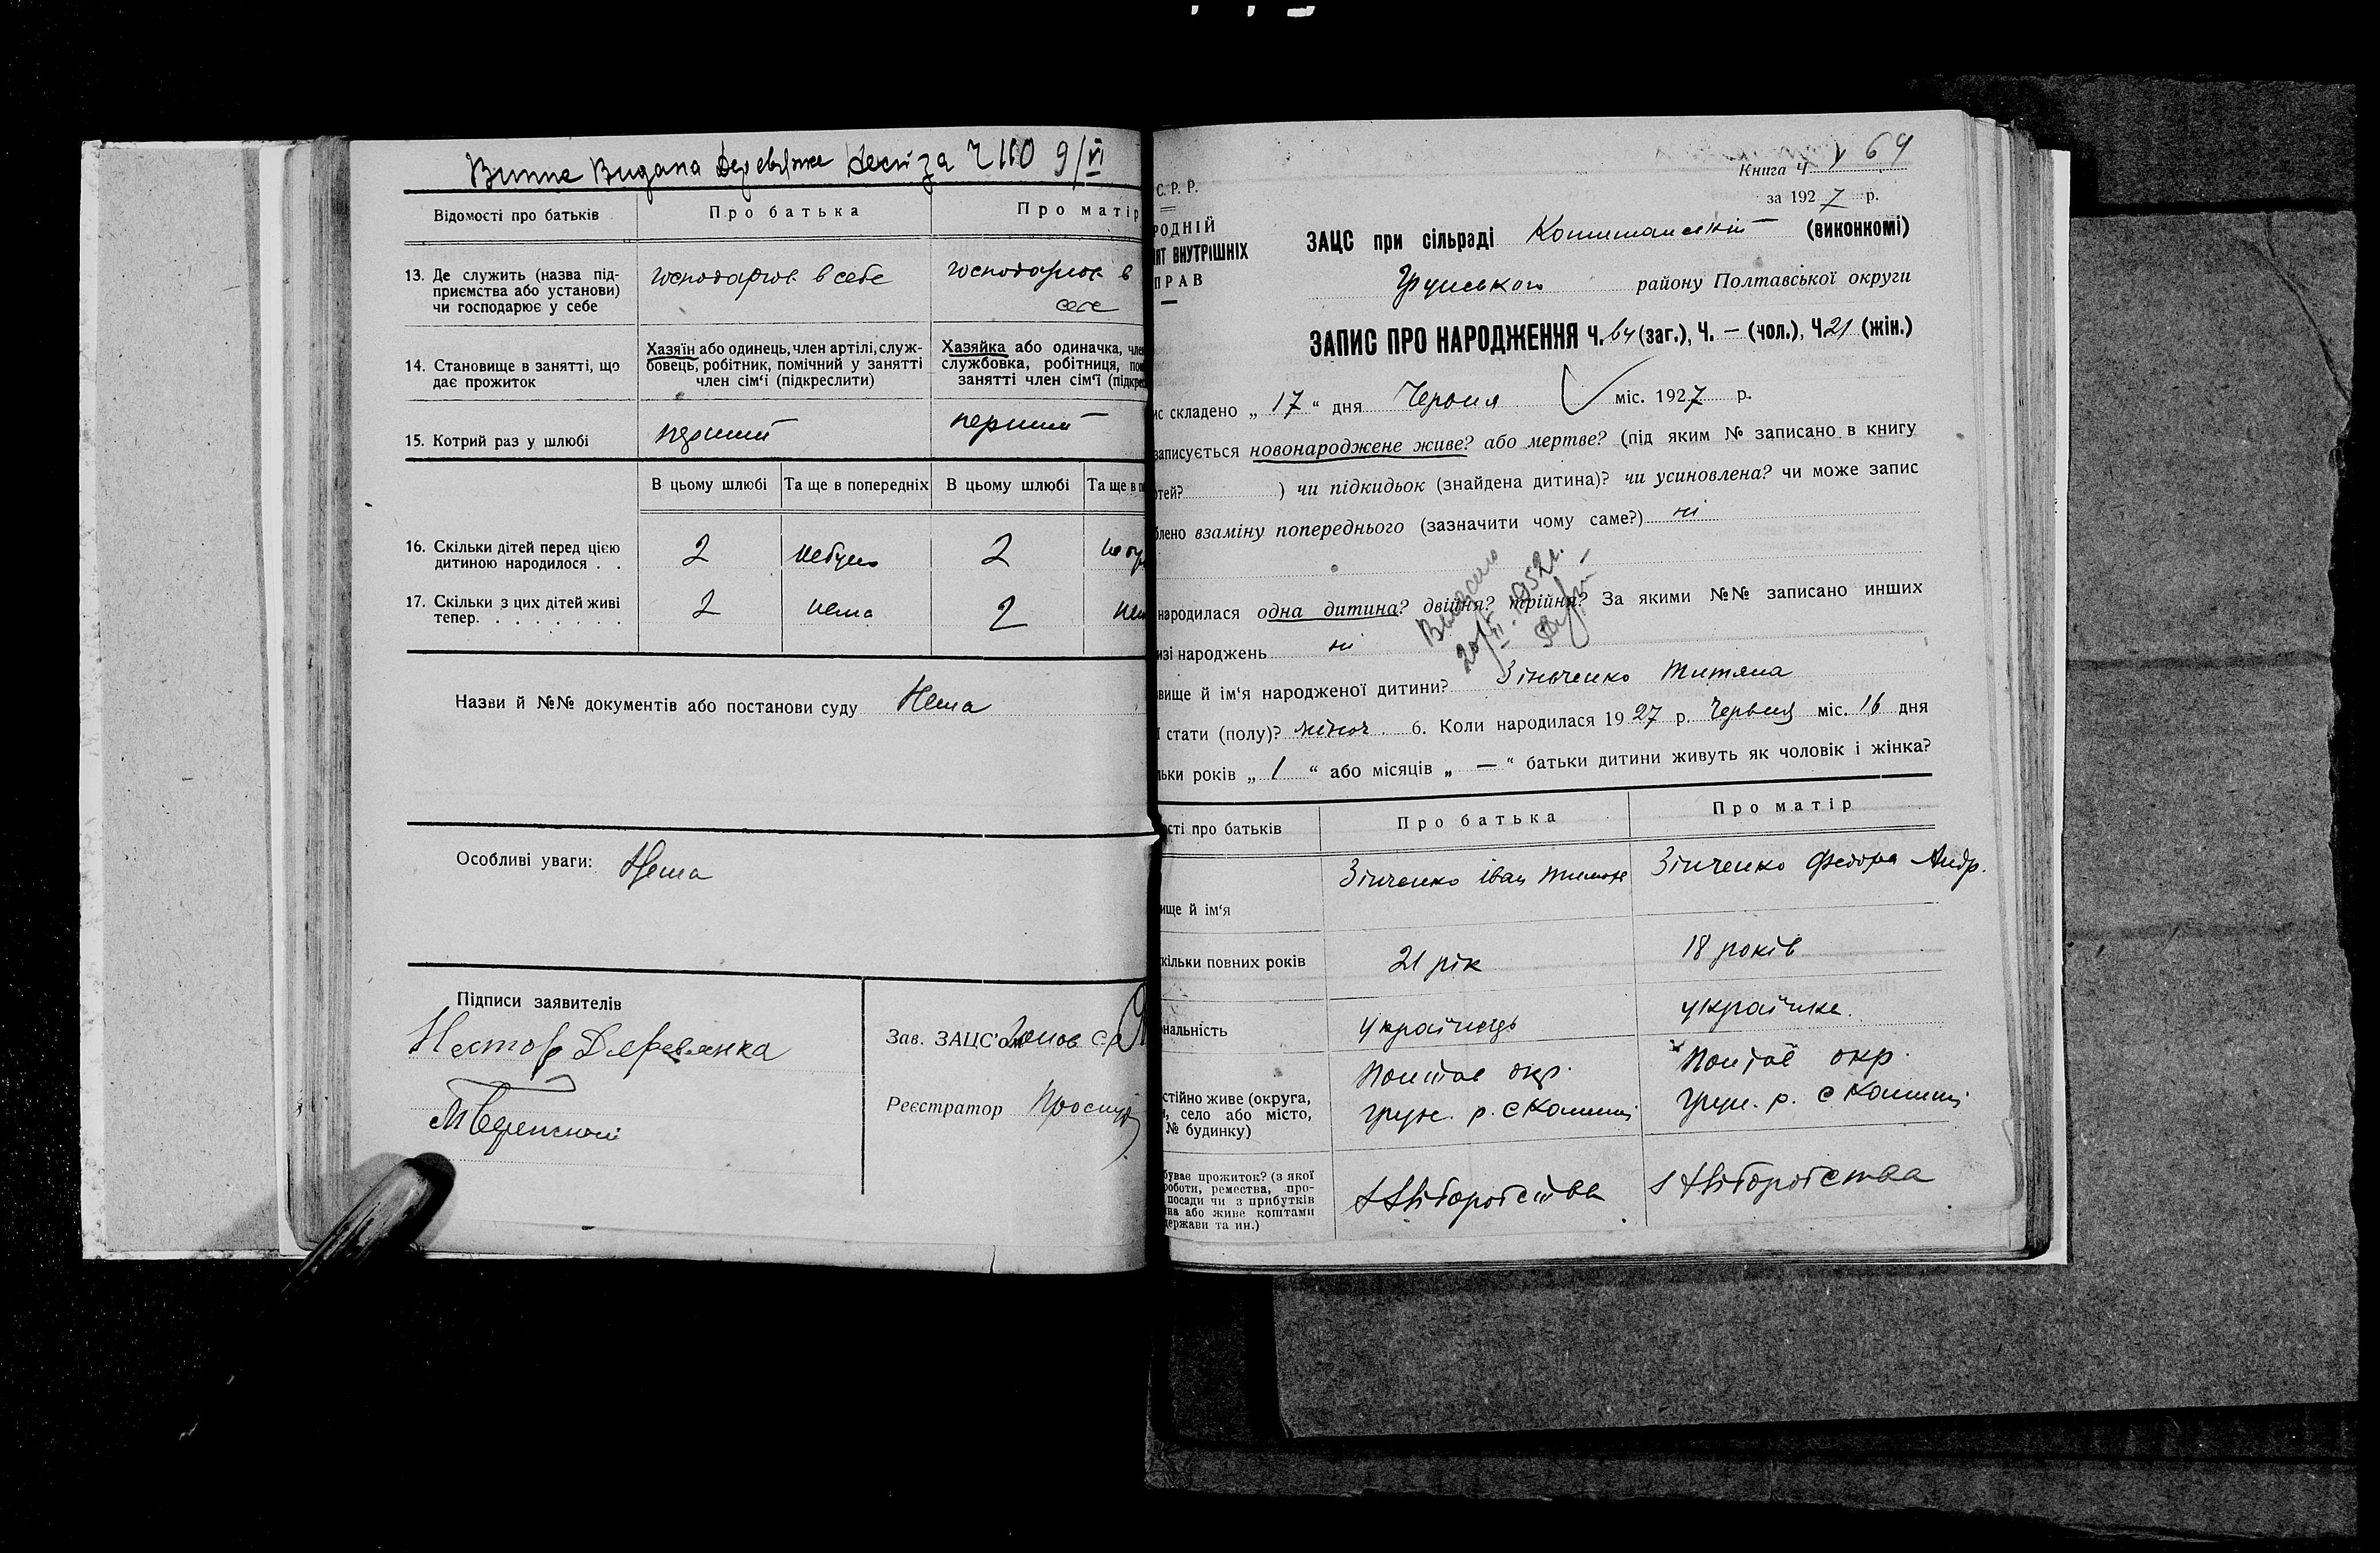 Випис Видана Деревянке за Ч 110 9/VI
Відомості про батьків Про батька Про матір
13. Де служить (назва під-
приємства або установи)
чи господарює у себе
господарює в себе
господарює в
себе
14. Становище в занятті, що
дає прожиток
Хазяїн або одинець, член артілі, служ-
бовець, робітник, помічний у занятті
член сім'ї (підкреслити)
Хазяйка або одиначка, член
службовка, робітниця, по
занятті член сім'ї (підкрес
15. Котрий раз у шлюбі перший перший
В цьому шлюбі Та ще в попередніх В цьому шлюбі Та ще в п
16. Скільки дітей перед цією
дитиною народилося . .
2 небуло 2
17. Скільки з цих дітей живі
тепер. . . . . . . .
2 нема 2 нем
Назви й №№ документів або постанови суду Нема
Особливі уваги: Нема
Підписи заявителів
Нестор Деревянка
Зав. ЗАЦС'ом
Реєстратор
Книга Ч 64
за 1927 р.
С. Р. Р.
РОДНІЙ
ЯТ ВНУТРІШНІХ
ПРАВ
ЗАЦС при сільраді (виконкомі)
Грунського району Полтавської округи
ЗАПИС ПРО НАРОДЖЕННЯ Ч. 64 (заг.), Ч. — (чол.), Ч 21 (жін.)
ис складено „ 17 “ дня Червня міс. 1927 р.
записується новонароджене живе? або мертве? (під яким № записано в книгу
ртей? ) чи підкидьок (знайдена дитина)? чи усиновлена? чи може запис
блено взаміну попереднього (зазначити чому саме?) ні
народилася одна дитина? двійня? трійня? За якими №№ записано инших
изі народжень ні
20/VI. 1952г.
вище й ім'я народженої дитини? Зіньченко Титяна
ї стати (полу)? жіноч 6. Коли народилася 1927 р. Червня міс. 16 дня
льки років „ 1 “ або місяців „ — “ батьки дитини живуть як чоловік і жінка?
сті про батьків Про батька Про матір
ище й ім'я
Зінченко Іван Тимоф
Зінченко Федора Андр.
кільки повних років 21 рік 18 років
нальність українець українка.
стійно живе (округа,
н, село або місто,
№ будинку)
Полтав окр.
грун. р. с Комиші
Полтав окр.
грун. р. с Комиші
буває прожиток? (з якої
роботи, ремества, про-
посади чи з прибутків
на або живе коштами
держави та ин.)
з хліборобства
з хліборобства